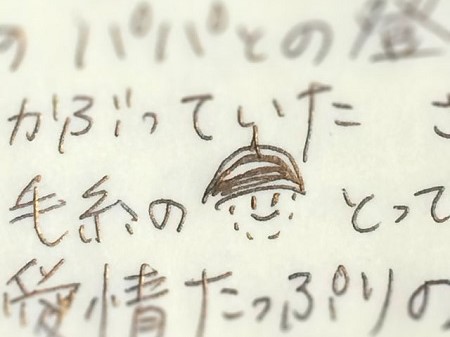 の パパとの
がぶっていた
毛糸の とって
愛情たっぷりの